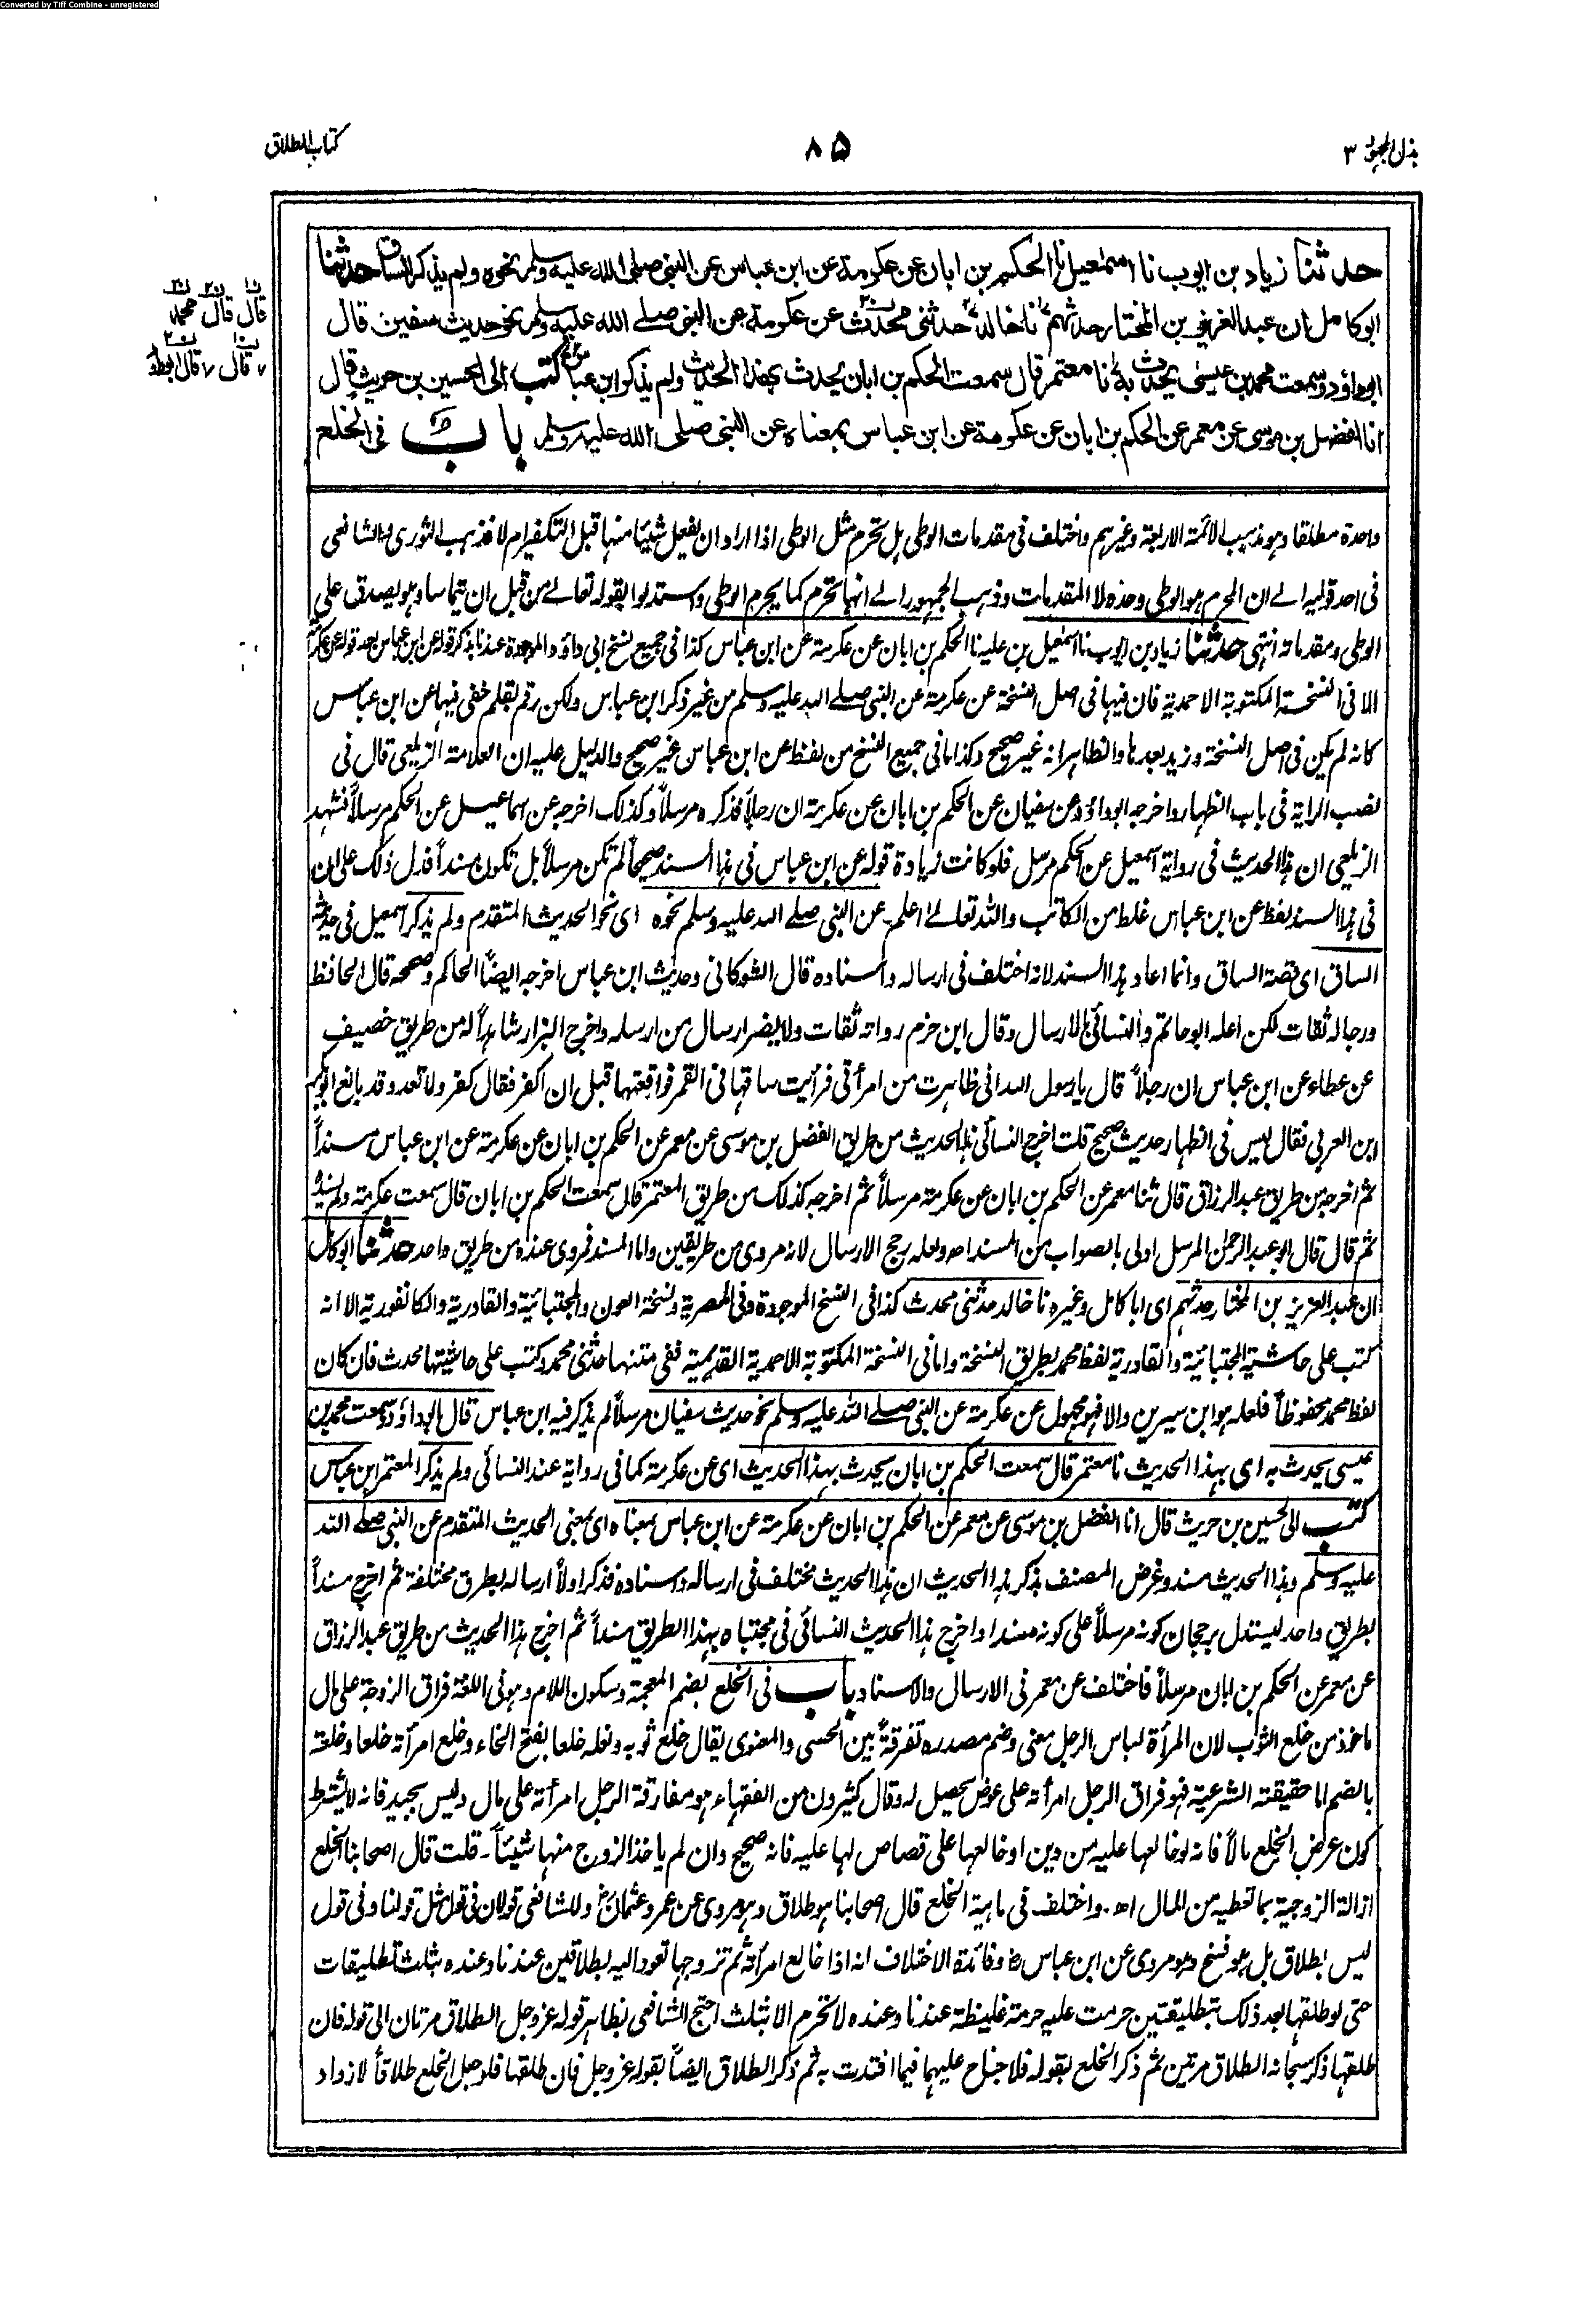 Converted by Tiff Combine - unregistered
بذل المجهود ٣
٨٥
كتاب الطلاق
حدثنا زياد بن ايوب نا اسمعيل نا الحكم بن ابان عن عكرمة عن ابن عباس عن النبي صلى الله عليه وسلم نحوه ولم يذكر الساق حدثنا
ابو كامل ان عبد العزيز بن المختار حدثهم نا خالد حدثني محدث عن عكرمة عن النبي صلے الله عليه وسلم نحو حديث سفين قال
ابو داؤد وسمعت محمد بن عيسى يحدث به نا معتمر قال سمعت الحكم بن ابان يحدث بهذا الحديث ولم يذكر ابن عباس كتب الى الحسين بن حريث قال
انا الفضل بن موسى عن معمر عن الحكم بن ابان عن عكرمة عن ابن عباس بمعناه عن النبي صلى الله عليه وسلم باب في الخلع
قال قال محمد
قال قال ابوداؤد
واحدة مطلقا وهو مذهب الائمة الاربعة وغيرهم واختلف في مقدمات الوطى هل تحرم مثل الوطى اذا اراد ان يفعل شيئا منها قبل التكفير ام لا فذهب الثورى والشافعى
في احد قوليه الے ان المحرم هو الوطى وحده لا المقدمات وذهب الجمهور الے انها تحرم كما يحرم الوطى واستدلوا بقوله تعالے من قبل ان يتماسا وهو يصدق على
الوطى ومقدماته انتهى حدثنا زياد بن ايوب نا اسمعيل بن علية نا الحكم بن ابان عن عكرمة عن ابن عباس كذا في جميع نسخ ابى داؤد الموجودة عندنا بذكر قوله عن ابن عباس بعد قوله عن عكرمة
الا في النسخة المكتوبة الاحمدية فان فيها في اصل النسخة عن عكرمة عن النبي صلے الله عليه وسلم من غير ذكر ابن عباس ولكن رقم بقلم خفى فيها عن ابن عباس
كانه لم يكن في اصل النسخة وزيد بعدها والظاهر انه غير صحيح وكذا ما في جميع النسخ من لفظ عن ابن عباس غير صحيح والدليل عليه ان العلامة الزيلعى قال في
نصب الراية في باب الظهار واخرجه ابو داؤد عن سفيان عن الحكم بن ابان عن عكرمة ان رجلا فذكره مرسلاً وكذلك اخرجه عن اسماعيل عن الحكم مرسلاً فشهد
الزيلعى ان هذا الحديث في رواية اسمعيل عن الحكم مرسل فلو كانت زيادة قوله عن ابن عباس في هذا السند صحيحا لم تكن مرسلاً بل تكون مسنداً فدل ذلك على ان
في هذا السند لفظ عن ابن عباس غلط من الكاتب والله تعالے اعلم۔ عن النبي صلے الله عليه وسلم نحوه اى نحو الحديث المتقدم ولم يذكر اسمعيل في حديثه
الساق اى قصة الساق وانما اعاد هذا السند لانه اختلف في ارساله واسناده قال الشوكانى وحديث ابن عباس اخرجه ايضاً الحاكم وصححه قال الحافظ
ورجاله ثقات لكن اعله ابو حاتم والنسائى بالارسال وقال ابن حزم رواته ثقات ولا يضر ارسال من ارسله واخرج البزار شاهداً له من طريق خصيف
عن عطاء عن ابن عباس ان رجلاً قال يا رسول الله انى ظاهرت من امرأتى فرأيت ساقها في القمر فواقعتها قبل ان اكفر فقال كفر ولا تعد وقد بالغ ابو بكر
ابن العربى فقال ليس في الظهار حديث صحيح قلت اخرج النسائى هذا الحديث من طريق الفضل بن موسى عن معمر عن الحكم بن ابان عن عكرمة عن ابن عباس مسنداً
ثم اخرجه من طريق عبد الرزاق قال ثنا معمر عن الحكم بن ابان عن عكرمة مرسلاً ثم اخرجه كذلك من طريق المعتمر قال سمعت الحكم بن ابان قال سمعت عكرمة ولم يسنده
ثم قال قال ابو عبد الرحمن المرسل اولى بالصواب من المسند اه ولعله رجح الارسال لانه مروى من طريقين واما المسند فمروى عنده من طريق واحد حدثنا ابو كامل
ان عبد العزيز بن المختار حدثهم اى ابا كامل وغيره نا خالد حدثنى محدث كذا في النسخ الموجودة وفى المصرية ونسخة العون والمجتبائية والقادرية والكانفورية الا انه
كتب على حاشية المجتبائية والقادرية لفظ محمد بطريق النسخة واما في النسخة المكتوبة الاحمدية القديمية ففى متنها حدثنى محمد وكتب على حاشيتها محدث فان كان
لفظ محمد محفوظاً فلعله هو ابن سيرين والا فهو مجهول عن عكرمة عن النبي صلے الله عليه وسلم نحو حديث سفيان مرسلاً لم يذكر فيه ابن عباس قال ابو داؤد وسمعت محمد بن
عيسى يحدث به اى بهذا الحديث نا معتمر قال سمعت الحكم بن ابان يحدث بهذا الحديث اى عن عكرمة كما في رواية عند النسائى ولم يذكر المعتمر ابن عباس
كتب الى الحسين بن حريث قال انا الفضل بن موسى عن معمر عن الحكم بن ابان عن عكرمة عن ابن عباس بمعناه اى بمعنى الحديث المتقدم عن النبي صلے الله
عليه وسلم وهذا الحديث مسند وغرض المصنف بذكر هذا الحديث ان هذا الحديث مختلف في ارساله واسناده فذكر اولاً ارساله بطرق مختلفة ثم اخرج مسنداً
بطريق واحد ليستدل برجحان كونه مرسلاً على كونه مسندا واخرج هذا الحديث النسائى في مجتباه بهذا الطريق مسنداً ثم اخرج هذا الحديث من طريق عبد الرزاق
عن معمر عن الحكم بن ابان مرسلاً فاختلف عن معمر في الارسال والاسناد باب في الخلع بضم المعجمة وسكون اللام وهو في اللغة فراق الزوجة على مال
ماخوذ من خلع الثوب لان المرأة لباس الرجل معنى وضم مصدره تفرقة بين الحسى والمعنوى يقال خلع ثوبه ونعله خلعا بفتح الخاء وخلع امرأته خلعا وخلعة
بالضم اما حقيقته الشرعية فهو فراق الرجل امرأته على عوض يحصل له وقال كثيرون من الفقهاء هو مفارقة الرجل امرأته على مال وليس بجيد فانه لا يشترط
كون عوض الخلع مالاً فانه لو خالعها عليه من دين او خالعها على قصاص لها عليه فانه صحيح وان لم ياخذ الزوج منها شيئاً۔ قلت قال اصحابنا الخلع
ازالة الزوجية بما تعطيه من المال اه۔ واختلف في ماهية الخلع قال اصحابنا هو طلاق وهو مروى عن عمر وعثمان رض وللشافعى قولان في قول مثل قولنا وفى قول
ليس بطلاق بل هو فسخ وهو مروى عن ابن عباس رض وفائدة الاختلاف انه اذا خالع امرأته ثم تزوجها تعود اليه بطلاقين عندنا وعنده بثلث تطليقات
حتى لو طلقها بعد ذلك بتطليقتين حرمت عليه حرمة غليظة عندنا وعنده لا تحرم الا بثلث احتج الشافعى بظاهر قوله عز وجل الطلاق مرتان الى قوله فان
طلقها ذكر سبحانه الطلاق مرتين ثم ذكر الخلع بقوله فلا جناح عليهما فيما افتدت به ثم ذكر الطلاق ايضاً بقوله عز وجل فان طلقها فلو جعل الخلع طلاقاً لازداد